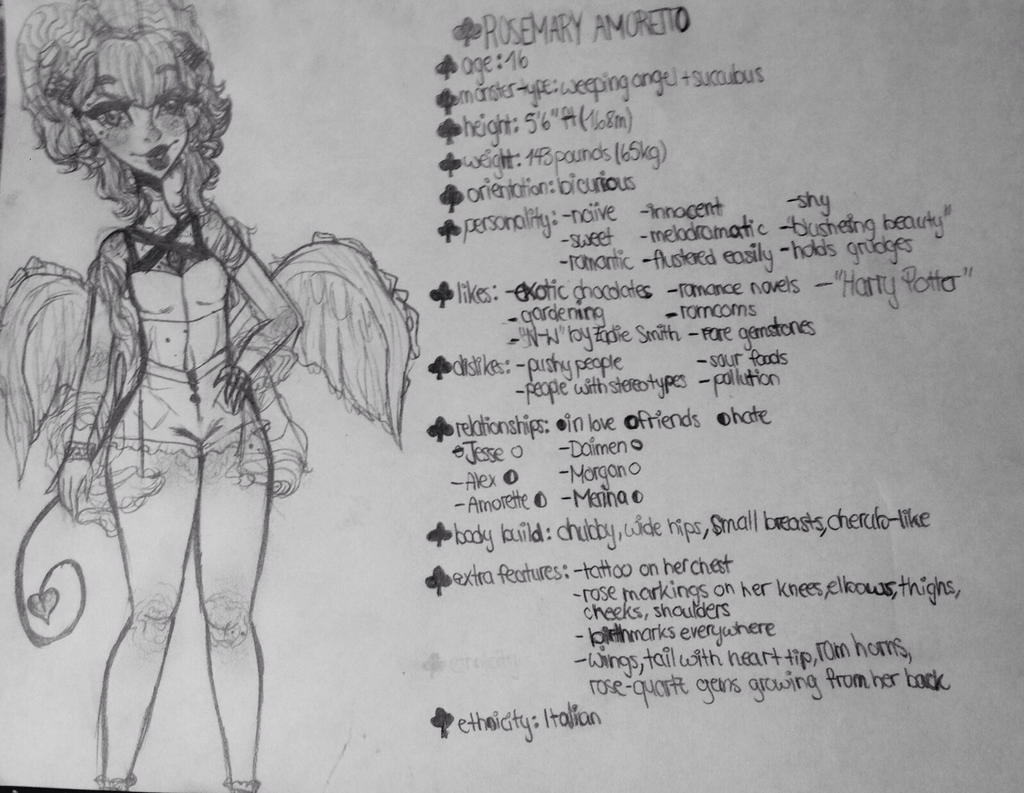 ROSEMARY AMORETTO
age: 16
monster-type: weeping angel + succubus
height: 5'6" ft (1,68m)
weight: 143 pounds (65kg)
orientation: bicurious
personality: -naiive -innocent -shy
-sweet -melodramatic -"blusheing beauty"
-romantic -flustered easily -holds grudges
likes: -exotic chocolates -romance novels -"Harry Potter"
-gardening -romcoms
-"N-W" by Zadie Smith -rare gemstones
dislikes: -pushy people -sour foods
-people with stereotypes -pollution
relationships: in love friends hate
-Jesse -Daimen
-Alex -Morgan
-Amorette -Merina
body build: chubby, wide hips, small breasts, cherub-like
extra features: -tattoo on her chest
-rose markings on her knees, elbows, thighs,
cheeks, shoulders
-birthmarks everywhere
-wings, tail with heart tip, ram horns,
rose-quartz gems growing from her back
ethnicity: Italian